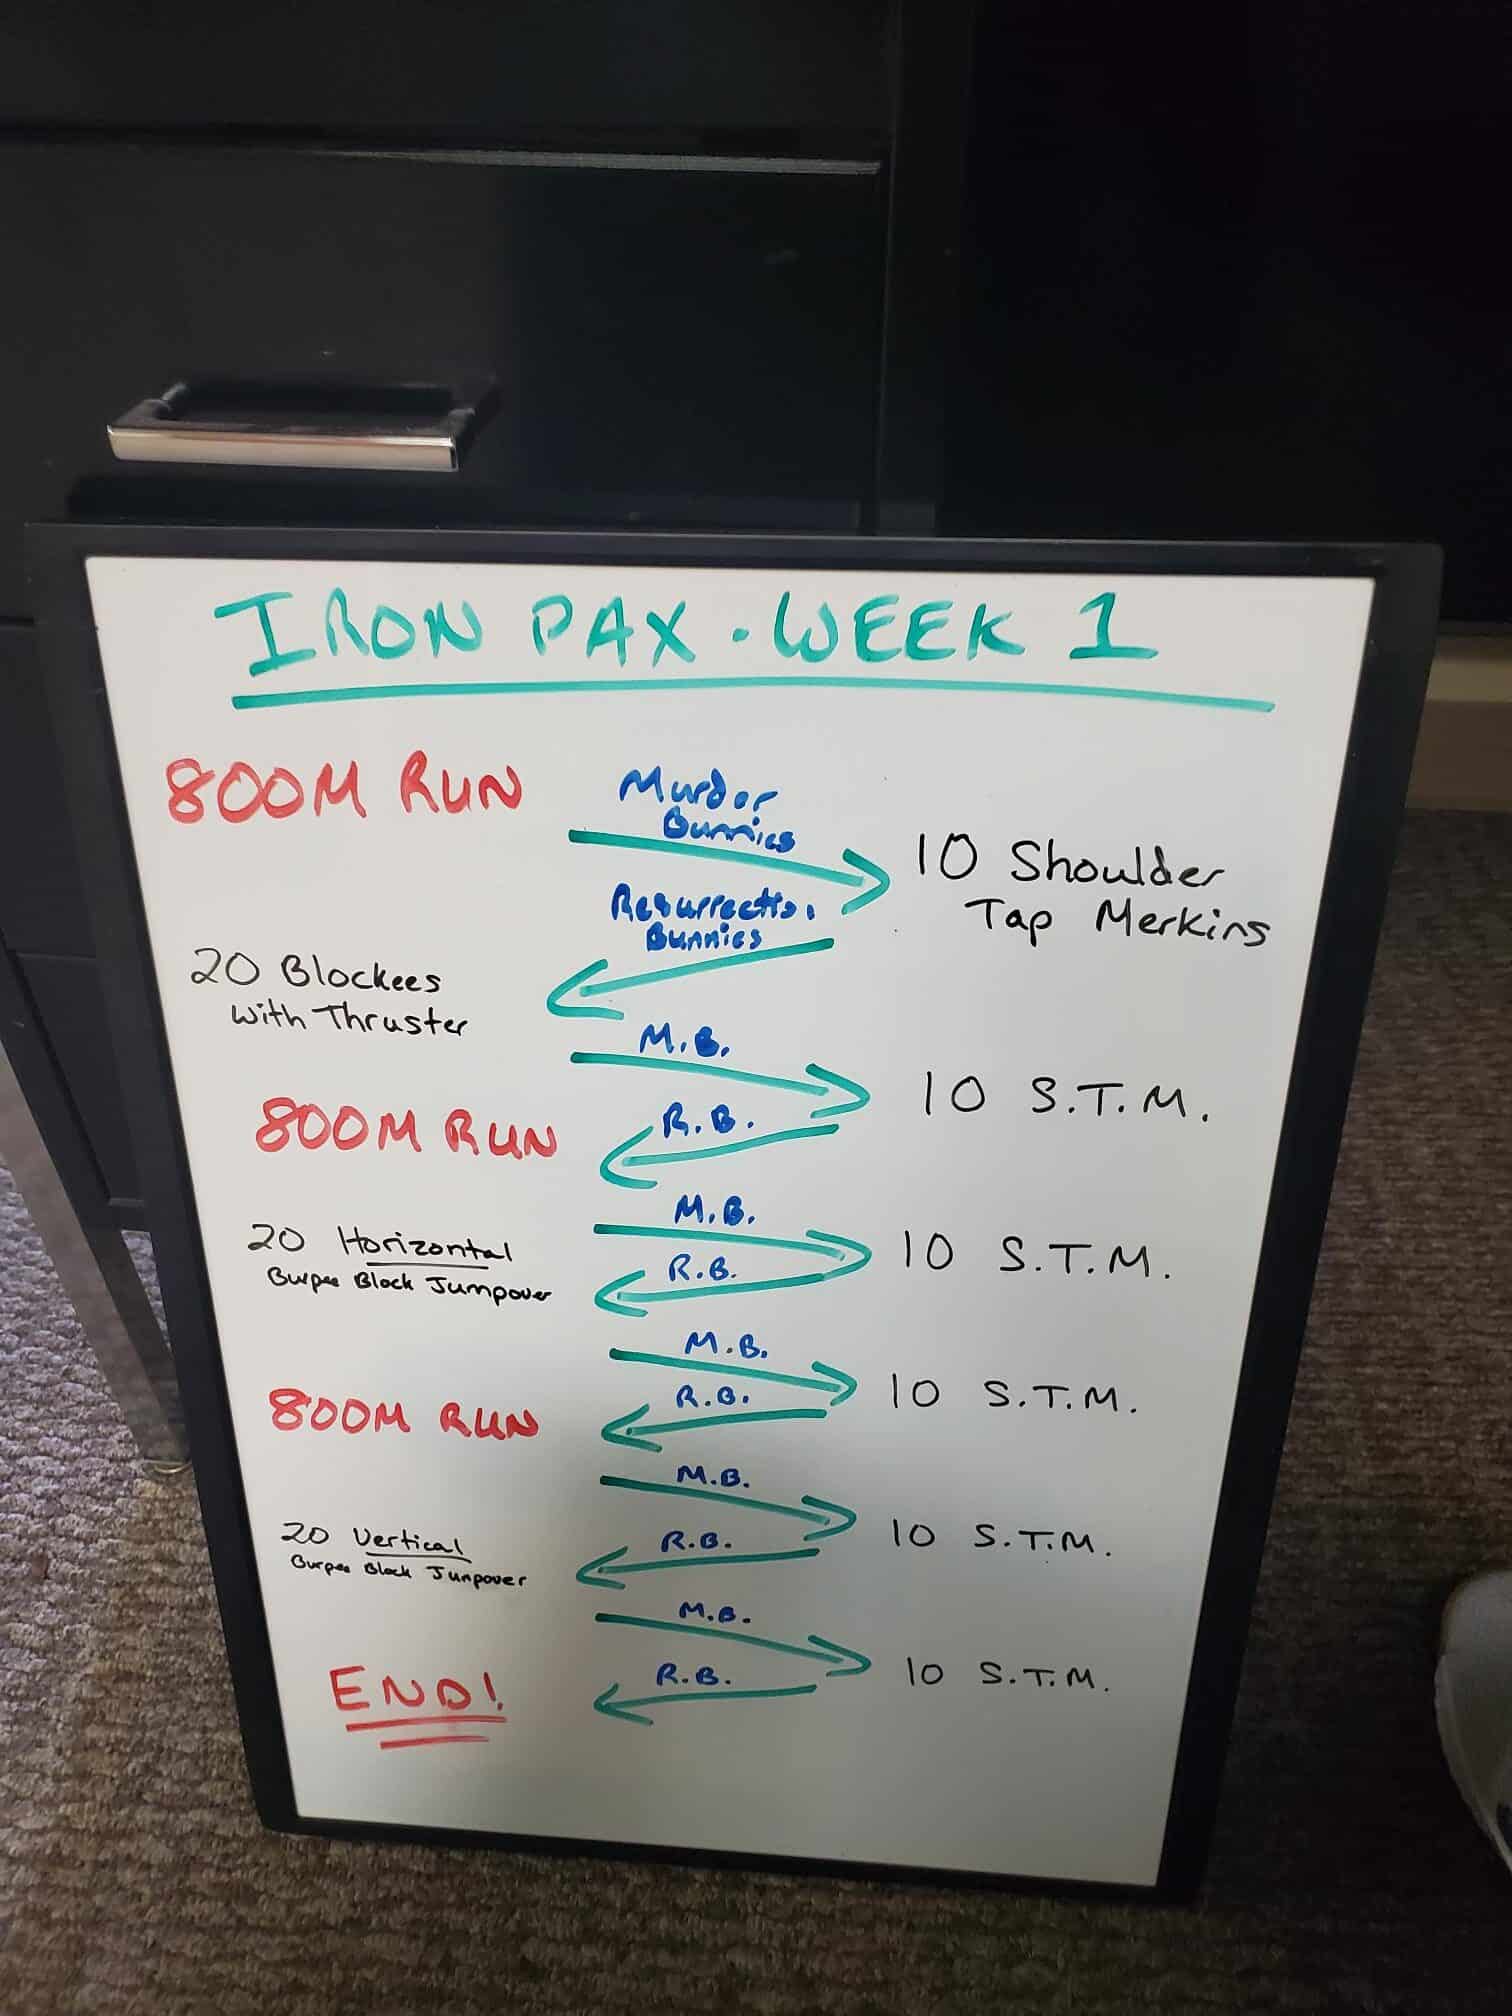 IRON PAX • WEEK 1
800M RUN
Murder
Bunnies
10 Shoulder
Tap Merkins
Resurrection
Bunnies
20 Blockees
with Thruster
M.B.
10 S.T.M.
R.B.
800M RUN
M.B.
10 S.T.M.
R.B.
20 Horizontal
Burpee Block Jumpover
M.B.
10 S.T.M.
R.B.
800M RUN
M.B.
10 S.T.M.
R.B.
20 Vertical
Burpee Block Jumpover
M.B.
10 S.T.M.
R.B.
END!